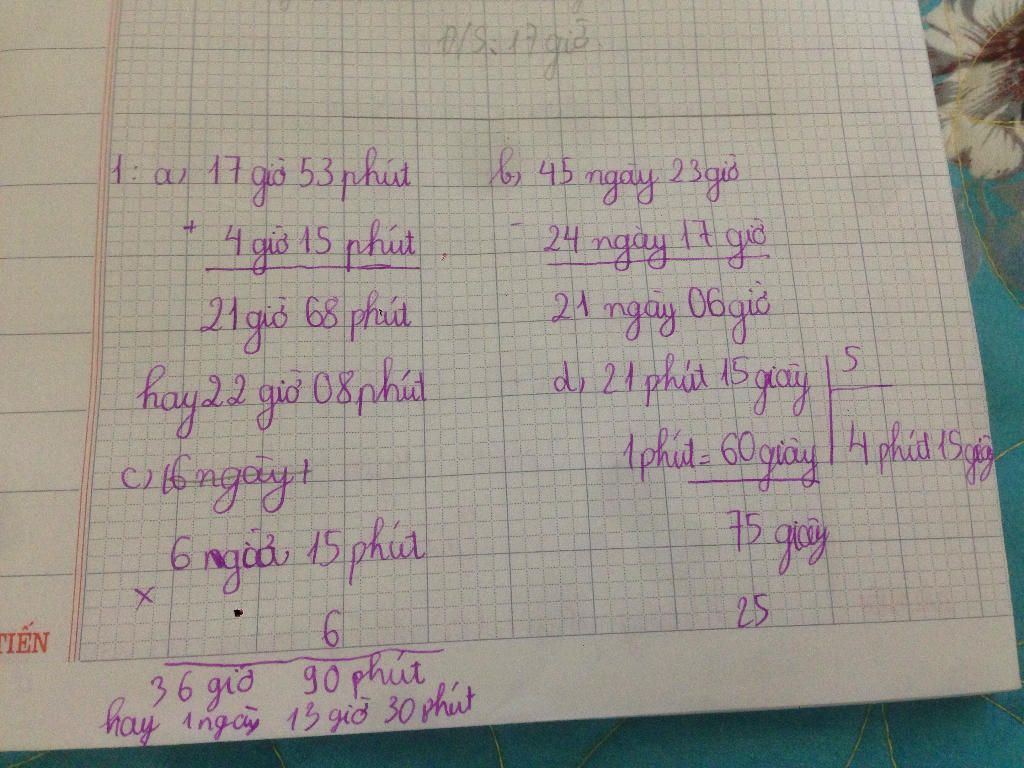 Đ/S: 17 giờ.
1: a, 17 giờ 53 phút
+ 4 giờ 15 phút
21 giờ 68 phút
hay 22 giờ 08 phút
b, 45 ngày 23 giờ
- 24 ngày 17 giờ
21 ngày 06 giờ
c, 16 ngày 1
6 giờ 15 phút
x 6
36 giờ 90 phút
hay 1 ngày 13 giờ 30 phút
d, 21 phút 15 giây 5
1 phút = 60 giây 4 phút 15 giâ
75 giây
25
TIẾN